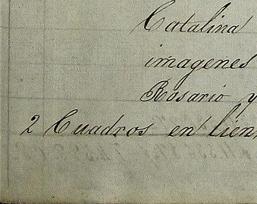 Catalina
imagenes
Rosario y
2 Cuadros en lien